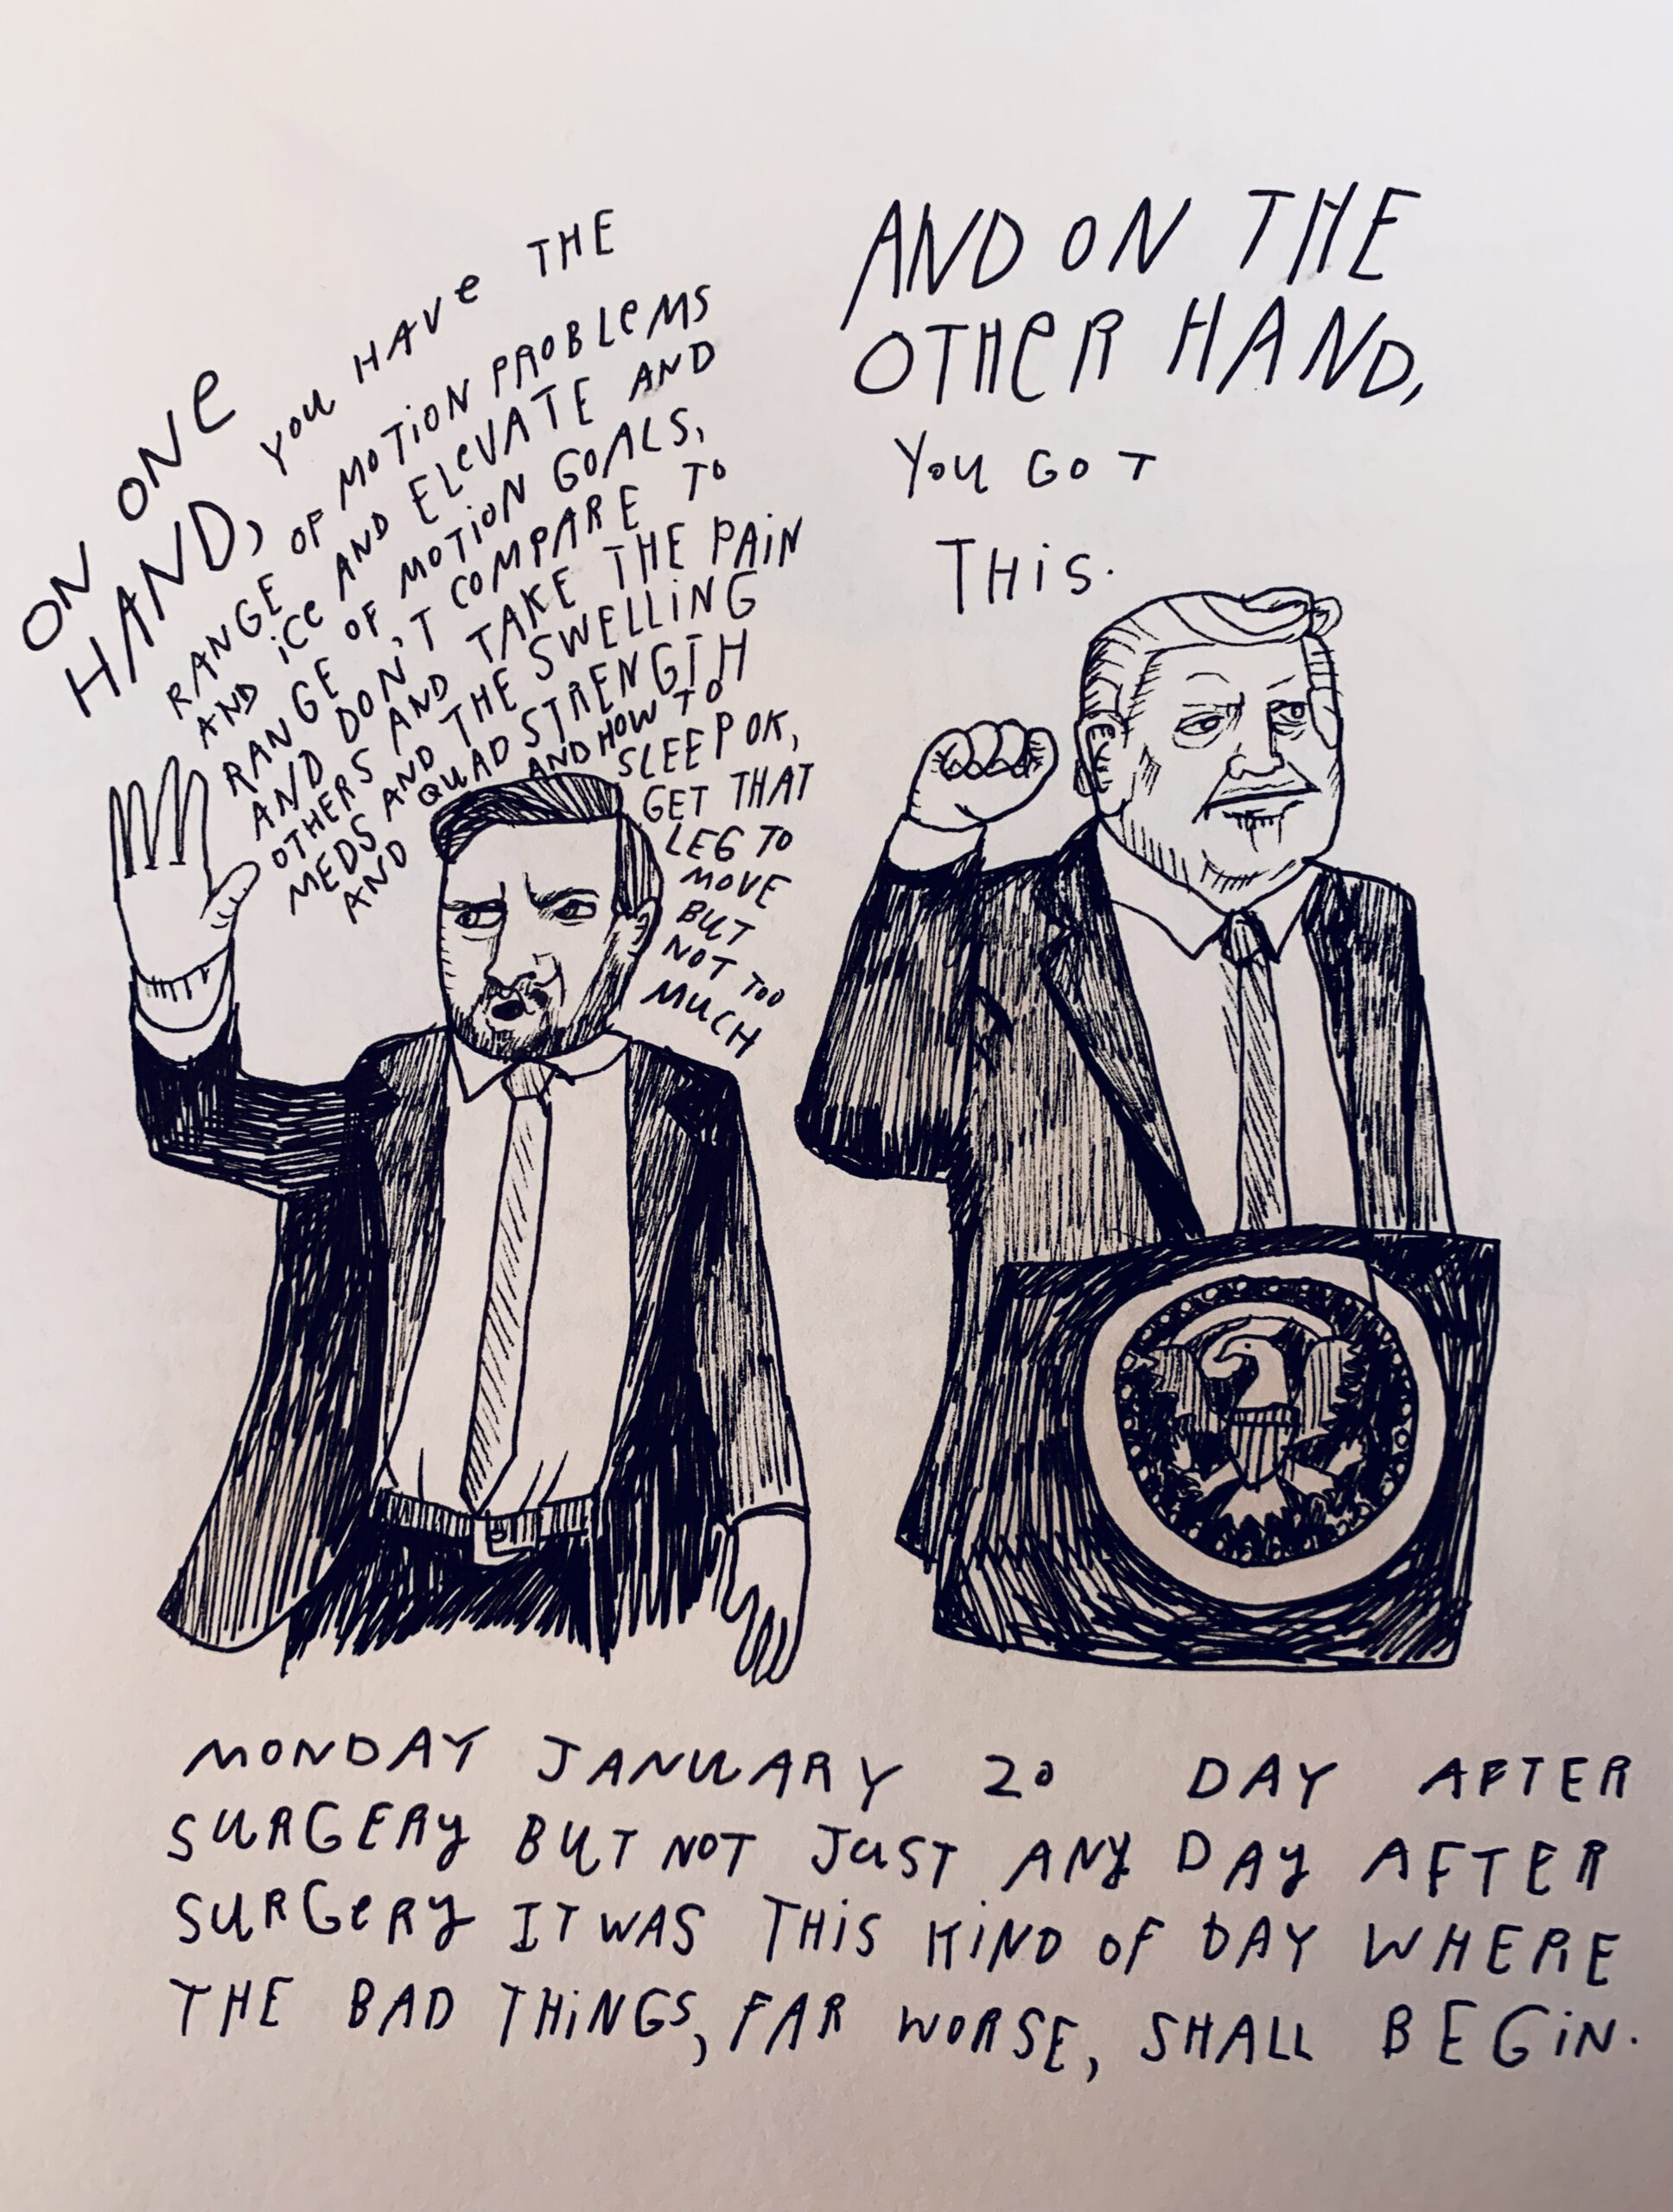 ON ONE
HAND, YOU HAVE THE
RANGE OF MOTION PROBLEMS
AND ICE AND ELEVATE AND
RANGE OF MOTION GOALS,
AND DON'T COMPARE TO
OTHERS AND TAKE THE PAIN
MEDS AND THE SWELLING
AND QUAD STRENGTH
AND HOW TO
SLEEP OK,
GET THAT
LEG TO
MOVE
BUT
NOT TOO
MUCH
AND ON THE
OTHER HAND,
YOU GOT
THIS.
MONDAY JANUARY 20 DAY AFTER
SURGERY BUT NOT JUST ANY DAY AFTER
SURGERY IT WAS THIS KIND OF DAY WHERE
THE BAD THINGS, FAR WORSE, SHALL BEGIN.